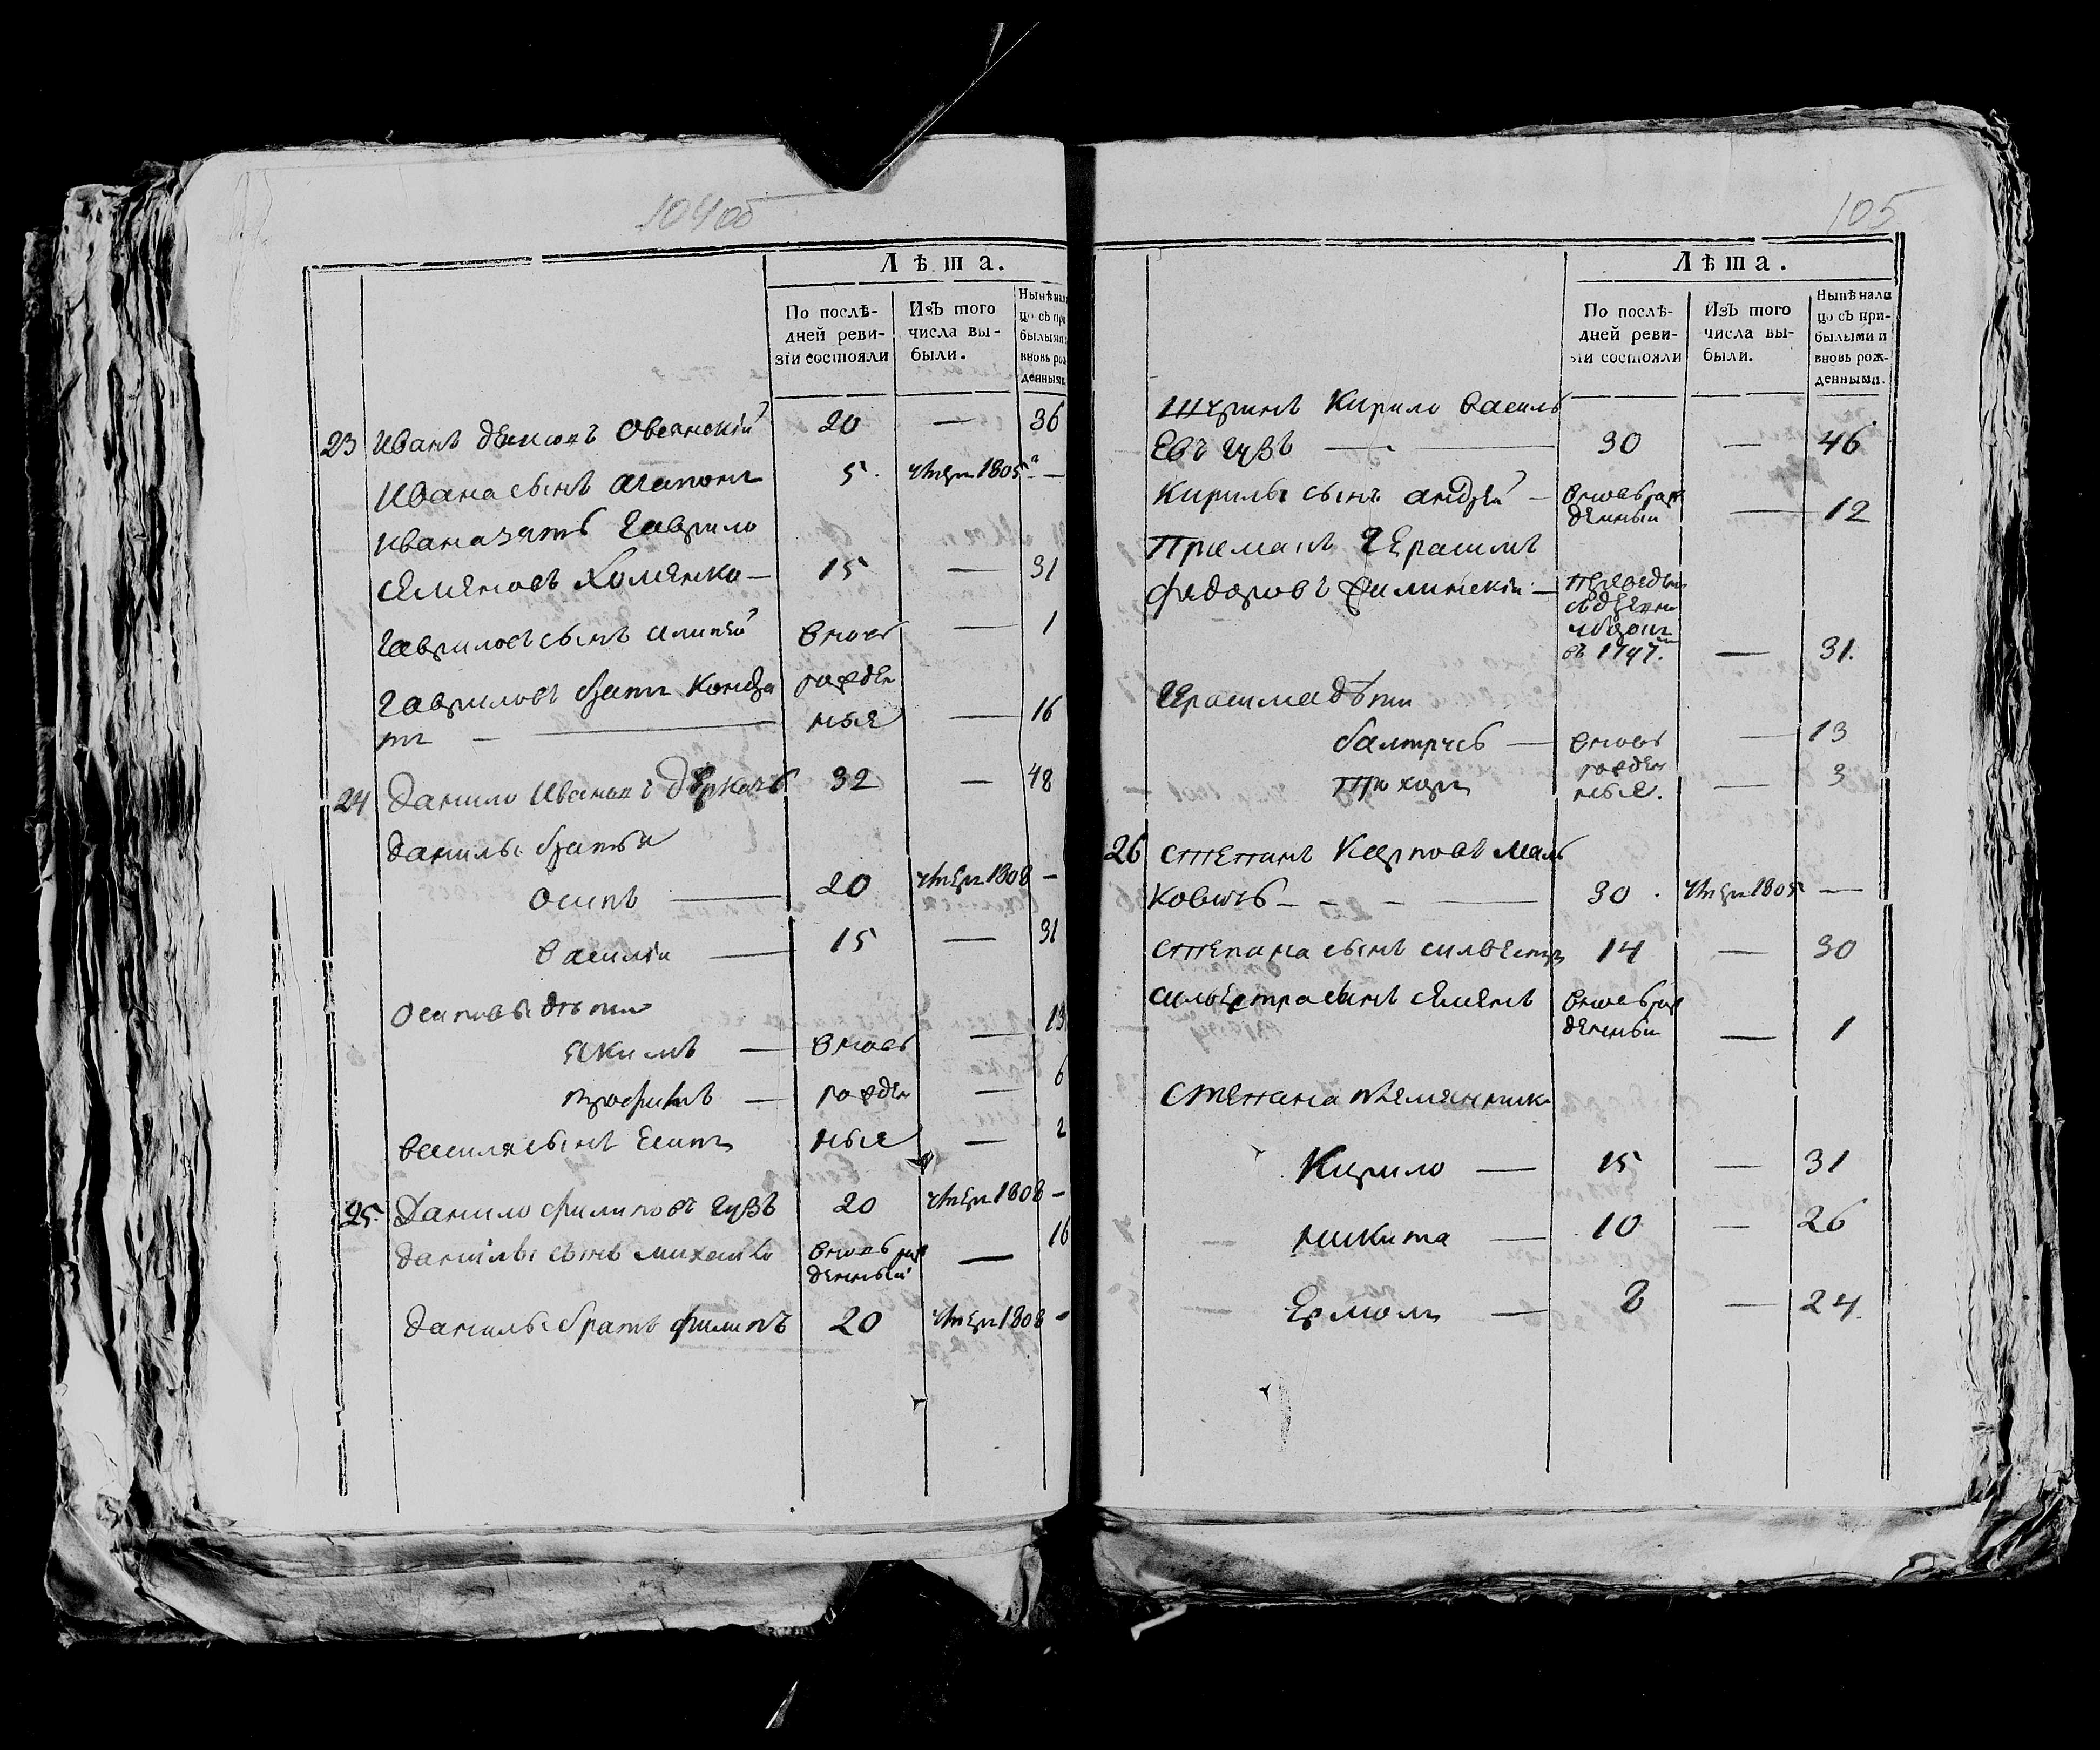 104 об
Лѣта.
По послѣ-
дней реви-
зіи состояли
Изъ того
числа вы-
были.
Нынѣ нали
цо съ при
былыми
вновь рож
денными
23 Иванъ Овсянскій 20 — 36
Ивана сынъ Агапонъ 5. умеръ 1805 г —
Ивана зять Гаврило
Семеновъ Хоменко — 15 — 31
Гавриловъ сынъ вновь — 1
Гавриловъ братъ Кондра рожден
тъ — ные — 16
24 Данило Ивановъ Деркачь 32 — 48
Данилы братья
Осипъ — 20 умеръ 1808 —
Василій — 15 — 31
Осиповы дѣти
Якимъ — вновь — 13
Трофимъ — рожден — 6
Василя сынъ Есипъ ные — 2
25. Данило Филиповъ Гузь 20 умеръ 1808 —
Данилы сынъ Михайло вновь рож — 16
денный
Данилы братъ Филипъ 20 умеръ 1808 —
105
Лѣта.
По послѣ-
дней реви-
зіи состояли
Изъ того
числа вы-
были.
Нынѣ нали
цо съ при-
былыми и
вновь рож-
денными.
Шуринъ Кирило Василь
евъ Гузь — 30 — 46
Кирилы сынъ Андрей — вновь рож
денный — 12
Приманъ Герасимъ
Федоровъ —
въ 1797. — 31.
Герасима дѣти
— вновь — 13
рожден
Прохоръ ные. — 3
26 Степанъ Карповъ Маль
ковичь — — — 30. умеръ 1805 —
Степана сынъ Сильвестръ 14 — 30
Сильвестра сынъ Семенъ вновь рож
денный — 1
Степана племянники
Кирило — 15 — 31
Никита — 10 — 26
Ермолъ — 8 — 24.